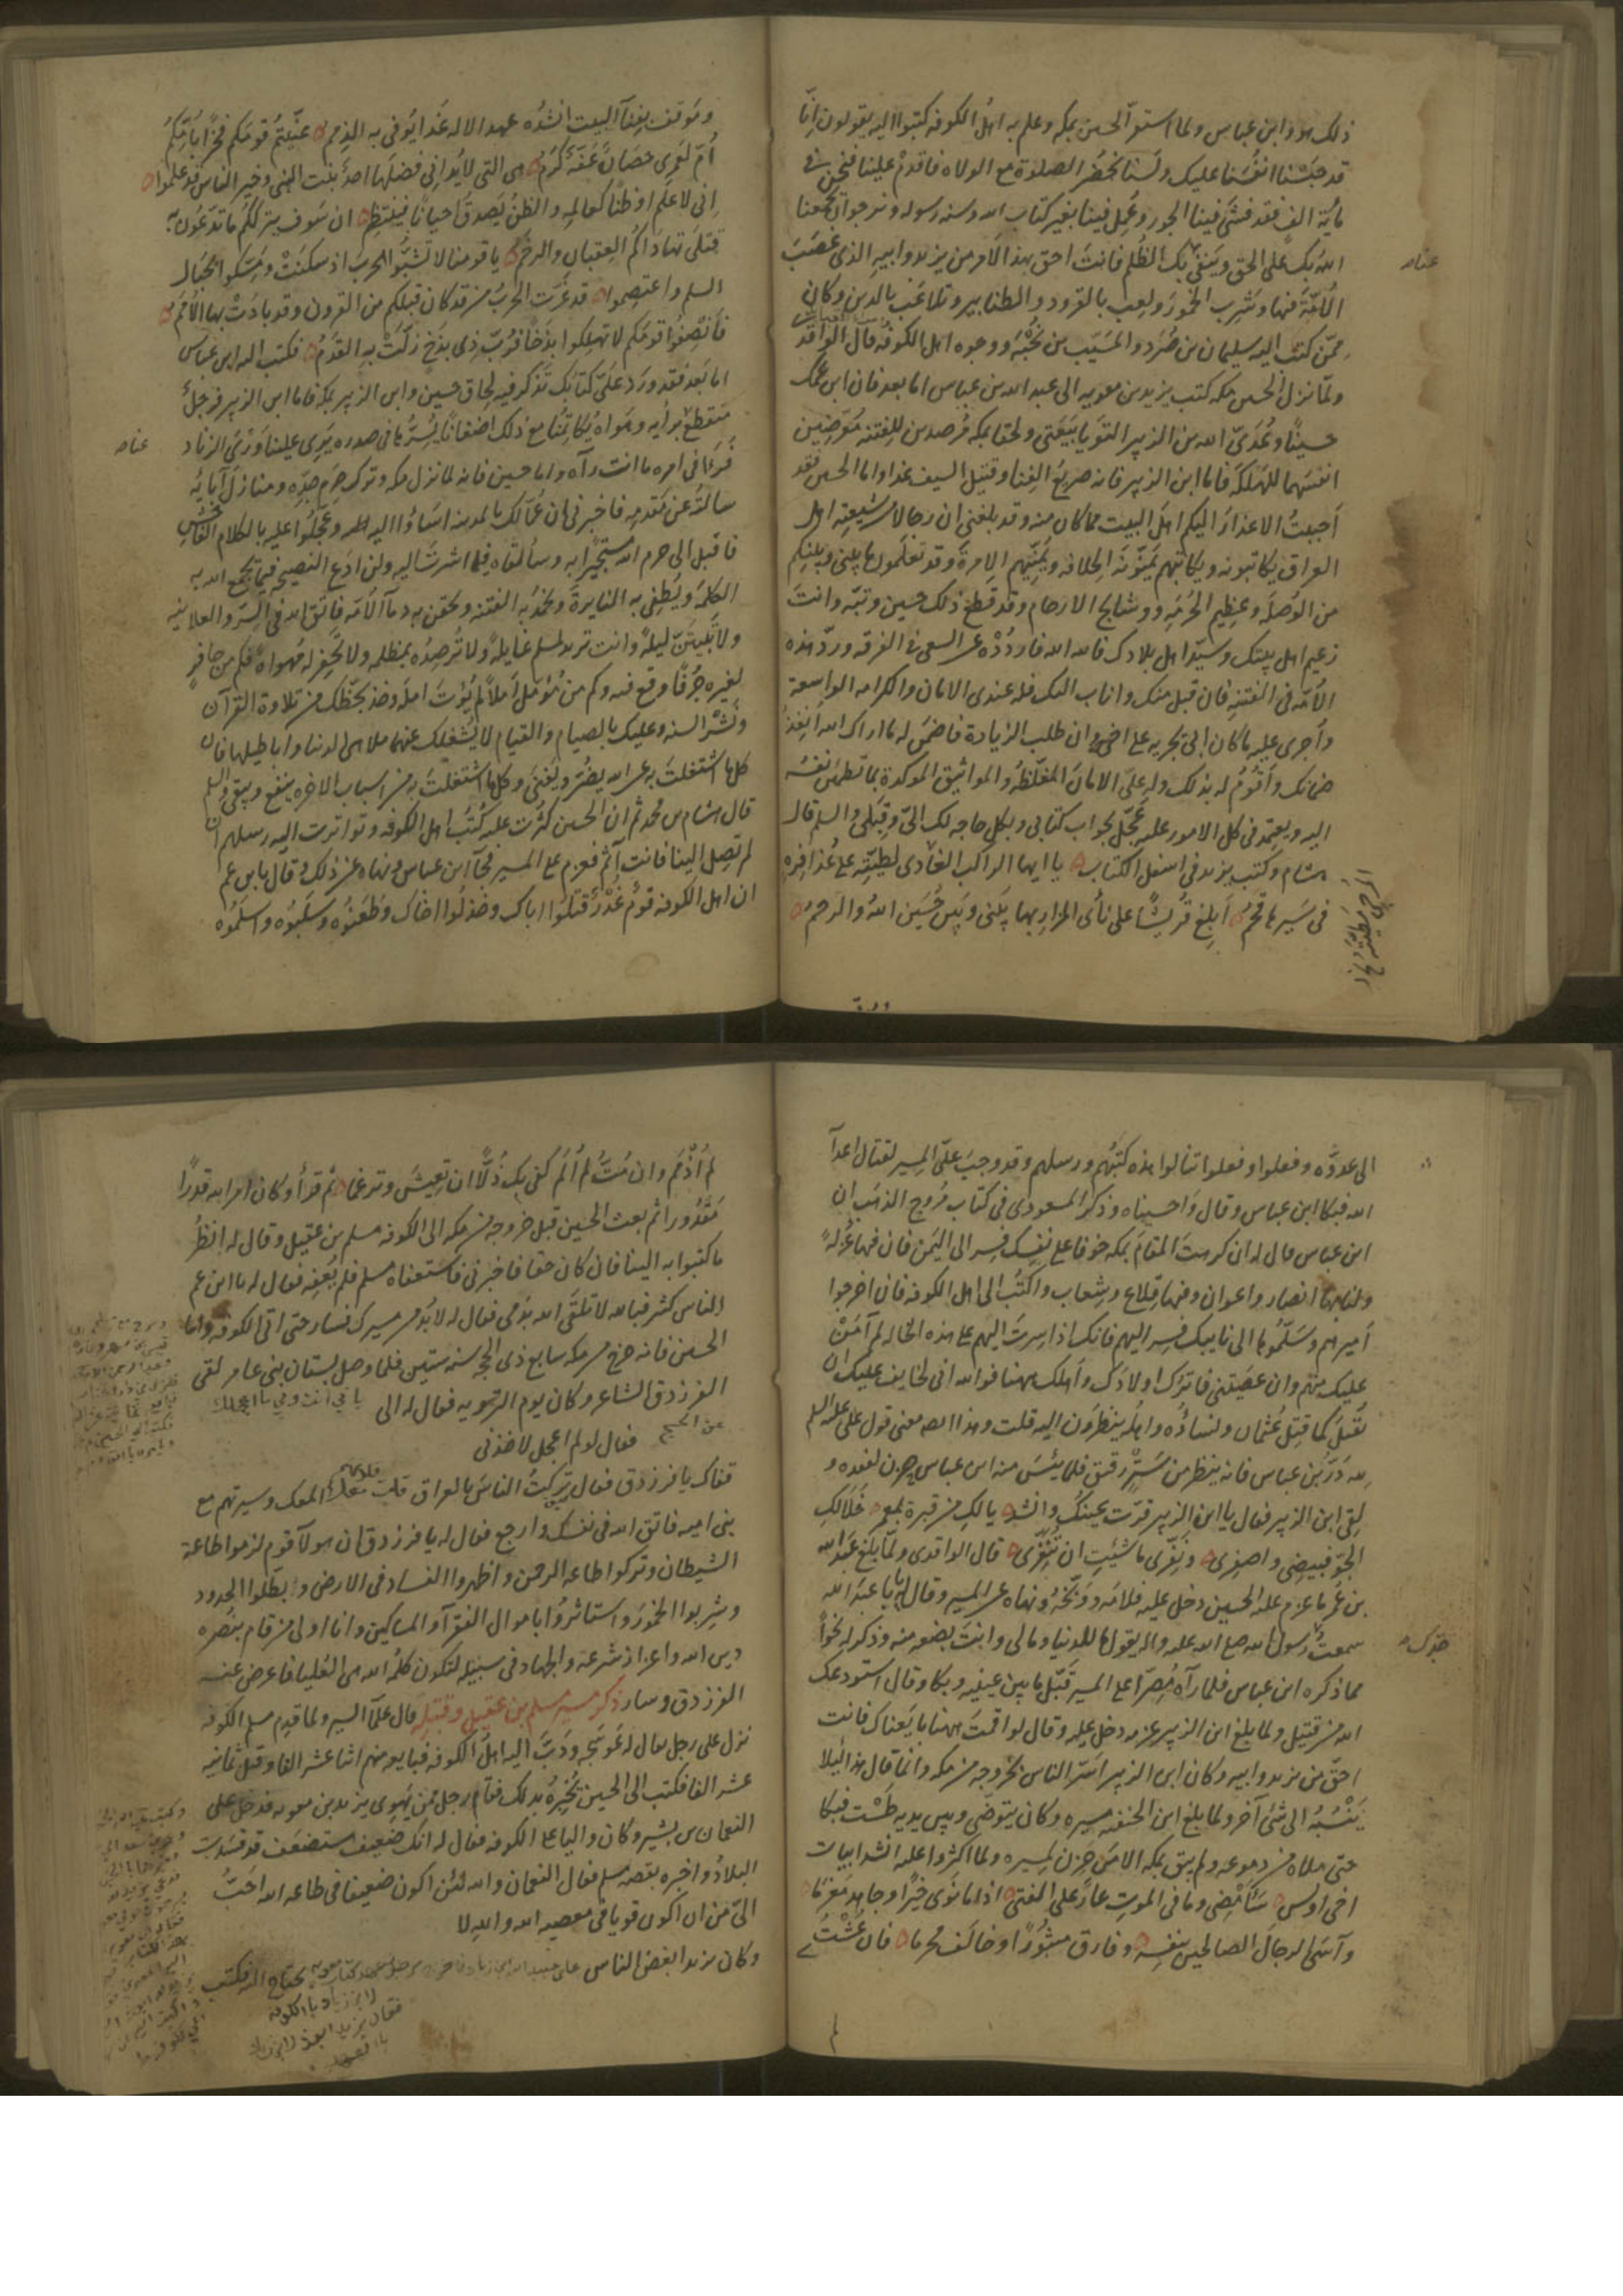 ذلك هو وابن عباس ولما استقر الحسين بمكه وعلم به اهل الكوفه كتبوا اليه يقولون انّا
قد حبسنا انفسنا عليك ولسنا نحضر الصلوة مع الولاه فاقدم علينا فنحن في
مأية الف فقد فشى فينا الجور وعُمل فينا بغير كتاب الله وسنه رسوله ونرجو ان يجمعنا
الله بك على الحق وينفي بك الظلم فانت احق بهذا الامر من يزيد وابيه الذي غصب
الامّة فيها وشرب الخمور ولعب بالقرود والطنابير وتلاعب بالدين وكان
ممّن كتب اليه سليمان بن صُرَد والمسيّب بن نجبَه ووجوه اهل الكوفه قال الواقدي
ولمّا نزل الحسين مكه كتب يزيد بن معويه الى عبد الله بن عباس اما بعد فان ابن عمك
حسينًا وعُدَيّ الله بن الزبير التويا ببيعتي ولحقا بمكه مُرصدين للفتنه معرّضين
انفسهما للهلكة فاما ابن الزبير فانه صريعُ الفنا وقتيل السيف غدا واما الحسين فقد
احببتُ الاعذار اليكم اهل البيت مما كان منه وقد بلغني ان رجالا من شيعته اهل
العراق يكاتبونه ويكاتبهم يمنّونه الخلافه ويُمنّيهم الامرة وقد تعلمون ما بيني وبينكم
من الوُصلة وعظيم الحُرمه ووشايج الارحام وقد قطع ذلك حسين وبتّه وانت
زعيم اهل بيتك وسيّد اهل بلادك فالله الله فاردُدْه عن السعي في الفرقه وردّ هذه
الامّه في الفتنه فان قبل منك واناب اليك فله عندي الامان والكرامه الواسعة
واُجرى عليه ما كان ابي يجريه على اخيه وان طلب الزيادة فاضمن له ما اراك الله اُنفذ
ضمانك واقُومُ له بذلك وله عليّ الامان المغلّظه والمواثيق الموكدة بما تطمئن نفسُه
اليه ويعتمد في كل الامور عليه عَجّل بجواب كتابي وبكل حاجه لك اليّ وقبَلي والسلم قال
هشام وكتب يزيد في اسفل الكتاب يا ايها الراكب الغادى لطيّته على عُذافِرةٍ
في سَيرها قحمُ اَبلِغ قُريشًا على نأى المزار بها بيني وبين حُسَين اللهُ والرحمُ
وموقف بفنآ البيت انشدُه عهد الاله غدا يُوفى به الذمم عنّيتُم قومَكم فخرًا باُمّكم
اُمّ لعَمرى حصَانٌ عَفّةٌ كَرَمُ هى التى لا يُدانى فضلَها احدٌ بنت النبى وخير الناس قد علموا
انى لاعلَم او ظنًا كعالِمِه والظنُ يَصدق احيانًا فينتظِم ان سَوف يترككم ما تدّعون به
قتلى تهادَاكُم العِقبان والرخمُ يا قومنا لا تشبُّوا الحربَ اذ سكنَتْ ومَسّكوا بحبال
السلم واعتصِموا قد غرّت الحربُ من قد كان قبلكم من القرون وقد بادَتْ بها الاُمَمُ
فاَنصِفُوا قومَكم لا تهلِكوا بذَخًا فرُبّ ذى بذَخ زلّتْ به القدَمُ فكتب اليه ابن عباس
اما بعد فقد ورَد علىّ كتابُك تذكر فيه لحاق حسين وابن الزبير بمكه فاما ابن الزبير فرجلٌ
منقطعٌ برأيه وهواهُ يُكاتمُنا مع ذلك اضغانًا يُسِرُّها فى صدره يَورى علينا وَرْىَ الزناد
فرَ فى امره ما انت رآه واما حسين فانه لما نزل مكه وترك حرَم جدّه ومنازل آبايه
سالتُه عن مَقدمِه فاخبرنى ان عُمّالك بالمدينه اساؤا اليه وعجّلوا عليه بالكلام الفاحش
فاقبل الى حرم الله مستجيرًا به وسألقاه فيما اشرتَ اليه ولن ادَع النصيحه فيما يجمع الله به
الكلمه ويُطفى به النايرة ويُخمدُ به الفتنه ويحقن به دمآ الامّة فاتق الله فى السرّ والعلانيه
ولا تبيتَنّ ليلةً وانت تريد لمسلم غايلةً ولا ترصِدُه بمظلمه ولا تحفِر له مهواةً فكم من حافرٍ
لغيره جُرفًا وقع فيه وكم من مؤمِّل اَملاً لم يُؤتَ امله وخذ بحظّك من تلاوة القرآن
ونَشْر السنه وعليك بالصيام والقيام لا يُشغلك عنهما ملاهى الدنيا واباطيلها فان
كل ما اشتغلتَ به عن الله يضُرّ ويَفنى وكل ما اشتغلتَ به من اسباب الاخره ينفع ويبقى والسلم
قال هشام بن محمد ثم ان الحسين كثُرت عليه كُتُب اهل الكوفه وتواترت اليه رسلهم ان
لم تصل الينا فانت آثم فعزم على المسير فجآ ابن عباس ونهاه عن ذلك وقال يا بن عم
ان اهل الكوفه قومٌ غُدُرٌ قتلوا اباك وخذلُوا اخاك وطعَنُوه وسلبُوه واسلَمُوه
الى عدوّه وفعلوا وفعلوا فقال هذه كتبُهم ورسلهم وقد وجبَ علىّ المسير لقتال اعدآ
الله فبكا ابن عباس وقال واحسيناه وذكر المسعودى فى كتاب مُروج الذهَب ان
ابن عباس قال له ان كرهتَ المقامَ بمكه خوفا على نفسك فسِر الى اليَمن فان فيها عُزلة
ولنا بها انصار واعوان وفيها قِلاع وشِعاب واكتُب الى اهل الكوفه فان اخرجوا
اَميرهم وسَلّموها الى نايبك فسِر اليهم فانك اذا سِرتَ اليهم على هذه الحاله لم آمَنْ
عليك منهم وان عصَيتنى فاترُك اولادَك واَهلك ههنا فوالله انى لخايف عليك ان
تُقتَل كما قتِل عُثمان ونساؤُه واهلُه ينظُرون اليه قلت وهذا معنى قول على عليه السلم
لله دَرّ بن عباس فانه ينظر من سِترٍ رقيق فلما يئسَ منه ابن عباس
لقى ابن الزبير فقال يا ابن الزبير قرّت عينُك وانشد يالكِ من قبرة بمعمر خَلا لكِ
الجوّ فبيضى واصفرى ونقِّرى ما شئتِ ان تُنقّرى قال الواقدى ولمّا بلغ عبد الله
بن عُمَر ما عزم عليه الحسين دخل عليه فلامَه ووَبّخَهُ ونهاه عن المسير وقال له يابا عبد الله
سمعتُ رسول الله صلى الله عليه واله يقول ما لى وللدنيا وما لى وانتَ بضعه منه وذكر له نحوًا
مما ذكره ابن عباس فلما رآهُ مُصِرًّا على المسير قَبّل ما بين عينيه وبكا وقال استودعك
الله من قتيل ولما بلغ ابن الزبير عزمه دخل عليه وقال لو اقمتَ ههنا بايَعناك فانت
احقّ من يزيد وابيه وكان ابن الزبير اَسَرّ الناس بخروجه من مكه وانما قال هذا لئلا
يَنسُبُه الى شئ آخر ولما بلغ ابن الحنفيه مسيره وكان يتوضى وبين يديه طَسْت فبكا
حتى ملاه من دموعه ولم يبق بمكه الا من حزن لمسيره ولما اكثروا عليه انشد ابيات
اخى اوس سَاَمْضى وما فى الموتِ عارٌ على الفتى اذا ما نوَى خيرًا وجاهد مغرمًا
وآسى الرجالَ الصالحين بنفسِه وفارق مثبُورًا وخالَف مُحرما فان عُشْتُ
لم اُذْمَم وان مُتُّ لم اُلَم كفى بك ذُلّاً ان تعيشَ وترغما ثم قرأ وكان امر الله قدرًا
مَقدُورا ثم بعث الحسين قبل خروجه من مكه الى الكوفه مسلم بن عقيل وقال له انظُر
ما كتبوا به الينا فان كان حقا فاخبرنى فاستعفاه مسلم فلم يُعفِه فقال له يا ابن عم
الناس كثير فبالله لا تلقَى الله بدَمى فقال له لابُد من مسيرك فسار حتى اتى الكوفه واما
الحسين فانه خرج من مكه سابع ذى الحجه سنه ستين فلما وصل بستان بنى عامر لقى
الفرزدق الشاعر وكان يوم الترويه فقال له الى
عن الحج فقال لو لم اعجل لاخذنى
يا فرزدق فقال تركتُ الناسَ بالعراق قلوبهم معك وسيوفهم مع
بنى اميه فاتق الله فى نفسك وارجع فقال له يا فرزدق ان هولآ قوم لزموا طاعة
الشيطان وتركوا طاعه الرحمن واظهروا الفساد فى الارض وابطلوا الحدود
وشربوا الخمور واستاثرُوا باموال الفقرآ والمساكين وانا اولى من قام بنصره
دين الله واعزاز شرعه والجهاد فى سبيله لتكون كلمةُ الله هى العُليا فاعرض عنه
الفرزدق وسار ذكر مسير مسلم بن عقيل وقتله قال علمآ السير ولما قدِم مسلم الكوفه
نزل على رجل يقال له عَوسَجه ودَبَّ اليه اهلُ الكوفه فبايعه منهم اثنا عشر الفا وقيل ثمانيه
عشر الفا فكتب الى الحسين يُخبرُه بذلك فقام رجل ممن يَهوى يزيد بن معويه فدخل على
النعمان بن بشير وكان واليا على الكوفه فقال له انك ضعيف مستضعَف قد فسَدت
البلاد واخبره بقصه مسلم فقال النعمان والله لئن اكون ضعيفا فى طاعه الله احَبُّ
الىّ من ان اكون قويا فى معصيه الله والله لا
وكان يزيد ابغض الناس